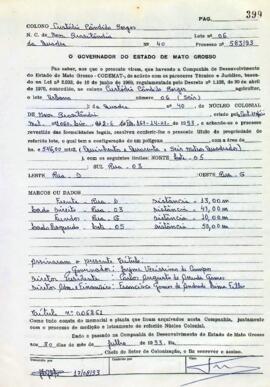 PAG. 399
COLONO Custódio Cândido Borges
N. C. de Nova Brasilândia Lote nº 06
da Quadra Nº 40 Processo nº 583/93
O GOVERNADOR DO ESTADO DE MATO GROSSO
Faz saber, que no presente virem, que havendo a Companhia de Desenvolvimento
do Estado de Mato Grosso - CODEMAT-, de acôrdo com os pareceres Técnico e Jurídico, basea-
do na Lei nº 2.909, de 16 de junho de 1969, regulamentada pelo Decreto nº 1.138, de 30 de abril
de 1970, concedido, ao colono Custódio Cândido Borges
o lote Urbano nº 06 (Seis)
da Quadra nº 40, do NÚCLEO COLONIAL
DE Nova Brasilândia, neste Estado,
de 1993, e achando-se o processo
revestido das formalidades legais, resolveu conferir-lhe o presente título de propriedade
do referido lote, o qual tem a configuração de um polígono com a área de
546,00 (Quinhentos e Quarenta e Seis metros Quadrados)
com os seguintes limites: NORTE lote 05
SUL Rua 03
LESTE Rua D OESTE Rua G
MARCOS OU DADOS
Frente - Rua D Distância = 13,00 m
Lado Direito - Rua 03 Distância = 47,00 m
Fundos - Rua G Distância = 10,00 m
Lado Esquerdo - lote 05 Distância = 50,00 m
Assinaram o presente título:
Governador: Jayme Veríssimo de Campos
Diretor Presidente
Diretor Adm. e Financeiro: Francisco Gomes de Andrade Lima Filho
Título nº 006861
Como tudo consta do memorial e planta que foram arquivados nesta Companhia, juntamente
com o processo de medição e loteamento do referido Núcleo Colonial.
Dado e passado na Companhia de Desenvolvimento do Estado de Mato Grosso
aos 30 dias do mês de julho de 1993. Eu
Chefe do Setor de Colonização, o fiz escrever e assino.
17/08/93